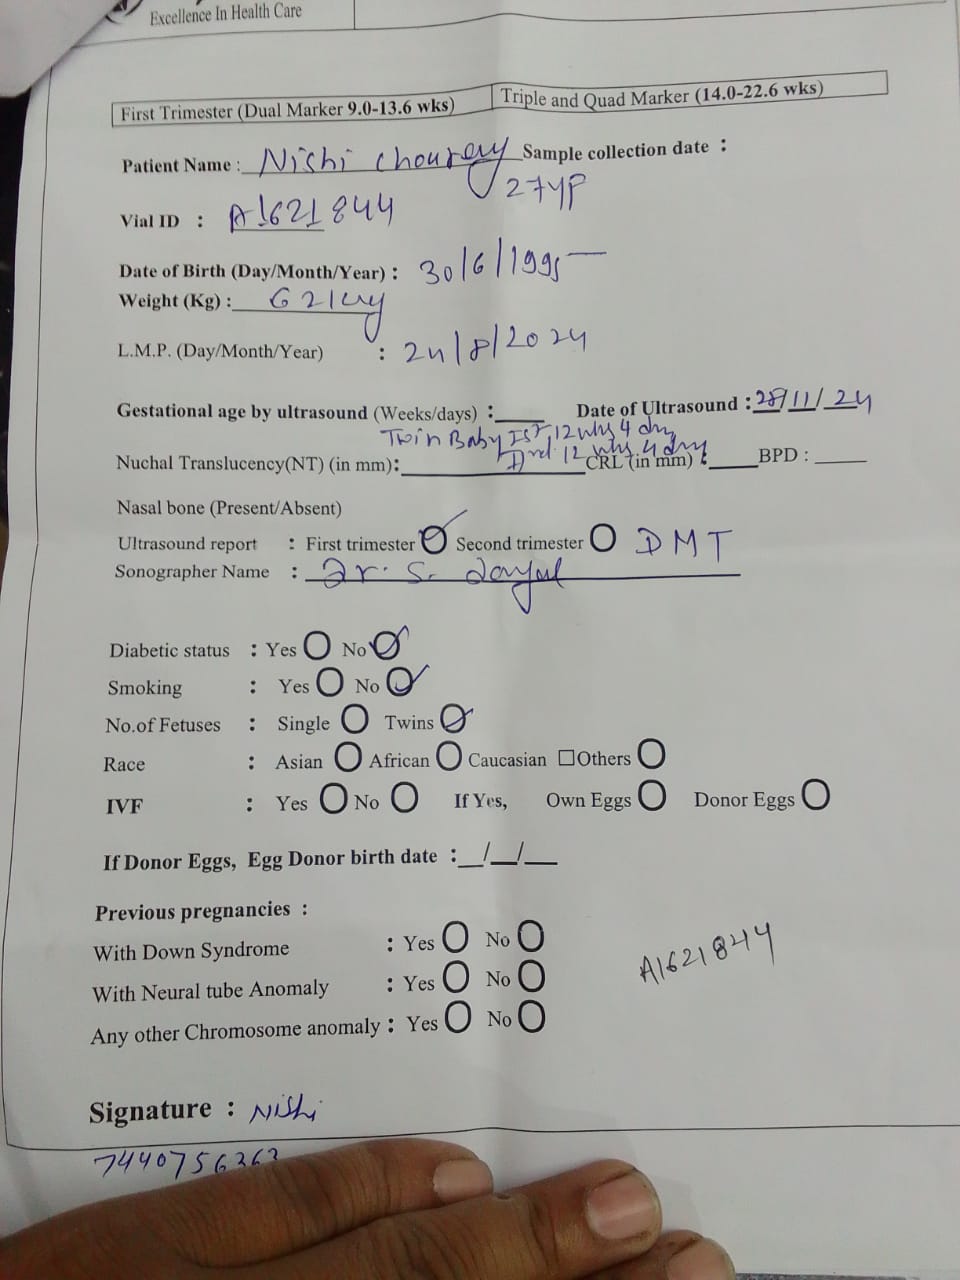 Excellence In Health Care
First Trimester (Dual Marker 9.0-13.6 wks) Triple and Quad Marker (14.0-22.6 wks)
Patient Name : Nishi Chourey Sample collection date :
27yr
Vial ID : A1621844
Date of Birth (Day/Month/Year) : 30/6/1995
Weight (Kg) : 62 kg
L.M.P. (Day/Month/Year) : 24/8/2024
Gestational age by ultrasound (Weeks/days) : Date of Ultrasound : 28/11/24
Twin Baby Ist, 12 wks 4 day
IInd. 12 wks 4 day
Nuchal Translucency(NT) (in mm): CRL (in mm) : BPD :
Nasal bone (Present/Absent)
Ultrasound report : First trimester Second trimester DMT
Sonographer Name : Dr. S.
Diabetic status : Yes No
Smoking : Yes No
No.of Fetuses : Single Twins
Race : Asian African Caucasian Others
IVF : Yes No If Yes, Own Eggs Donor Eggs
If Donor Eggs, Egg Donor birth date : __/__/__
Previous pregnancies :
With Down Syndrome : Yes No
With Neural tube Anomaly : Yes No
A1621844
Any other Chromosome anomaly : Yes No
Signature : Nishi
7440756363